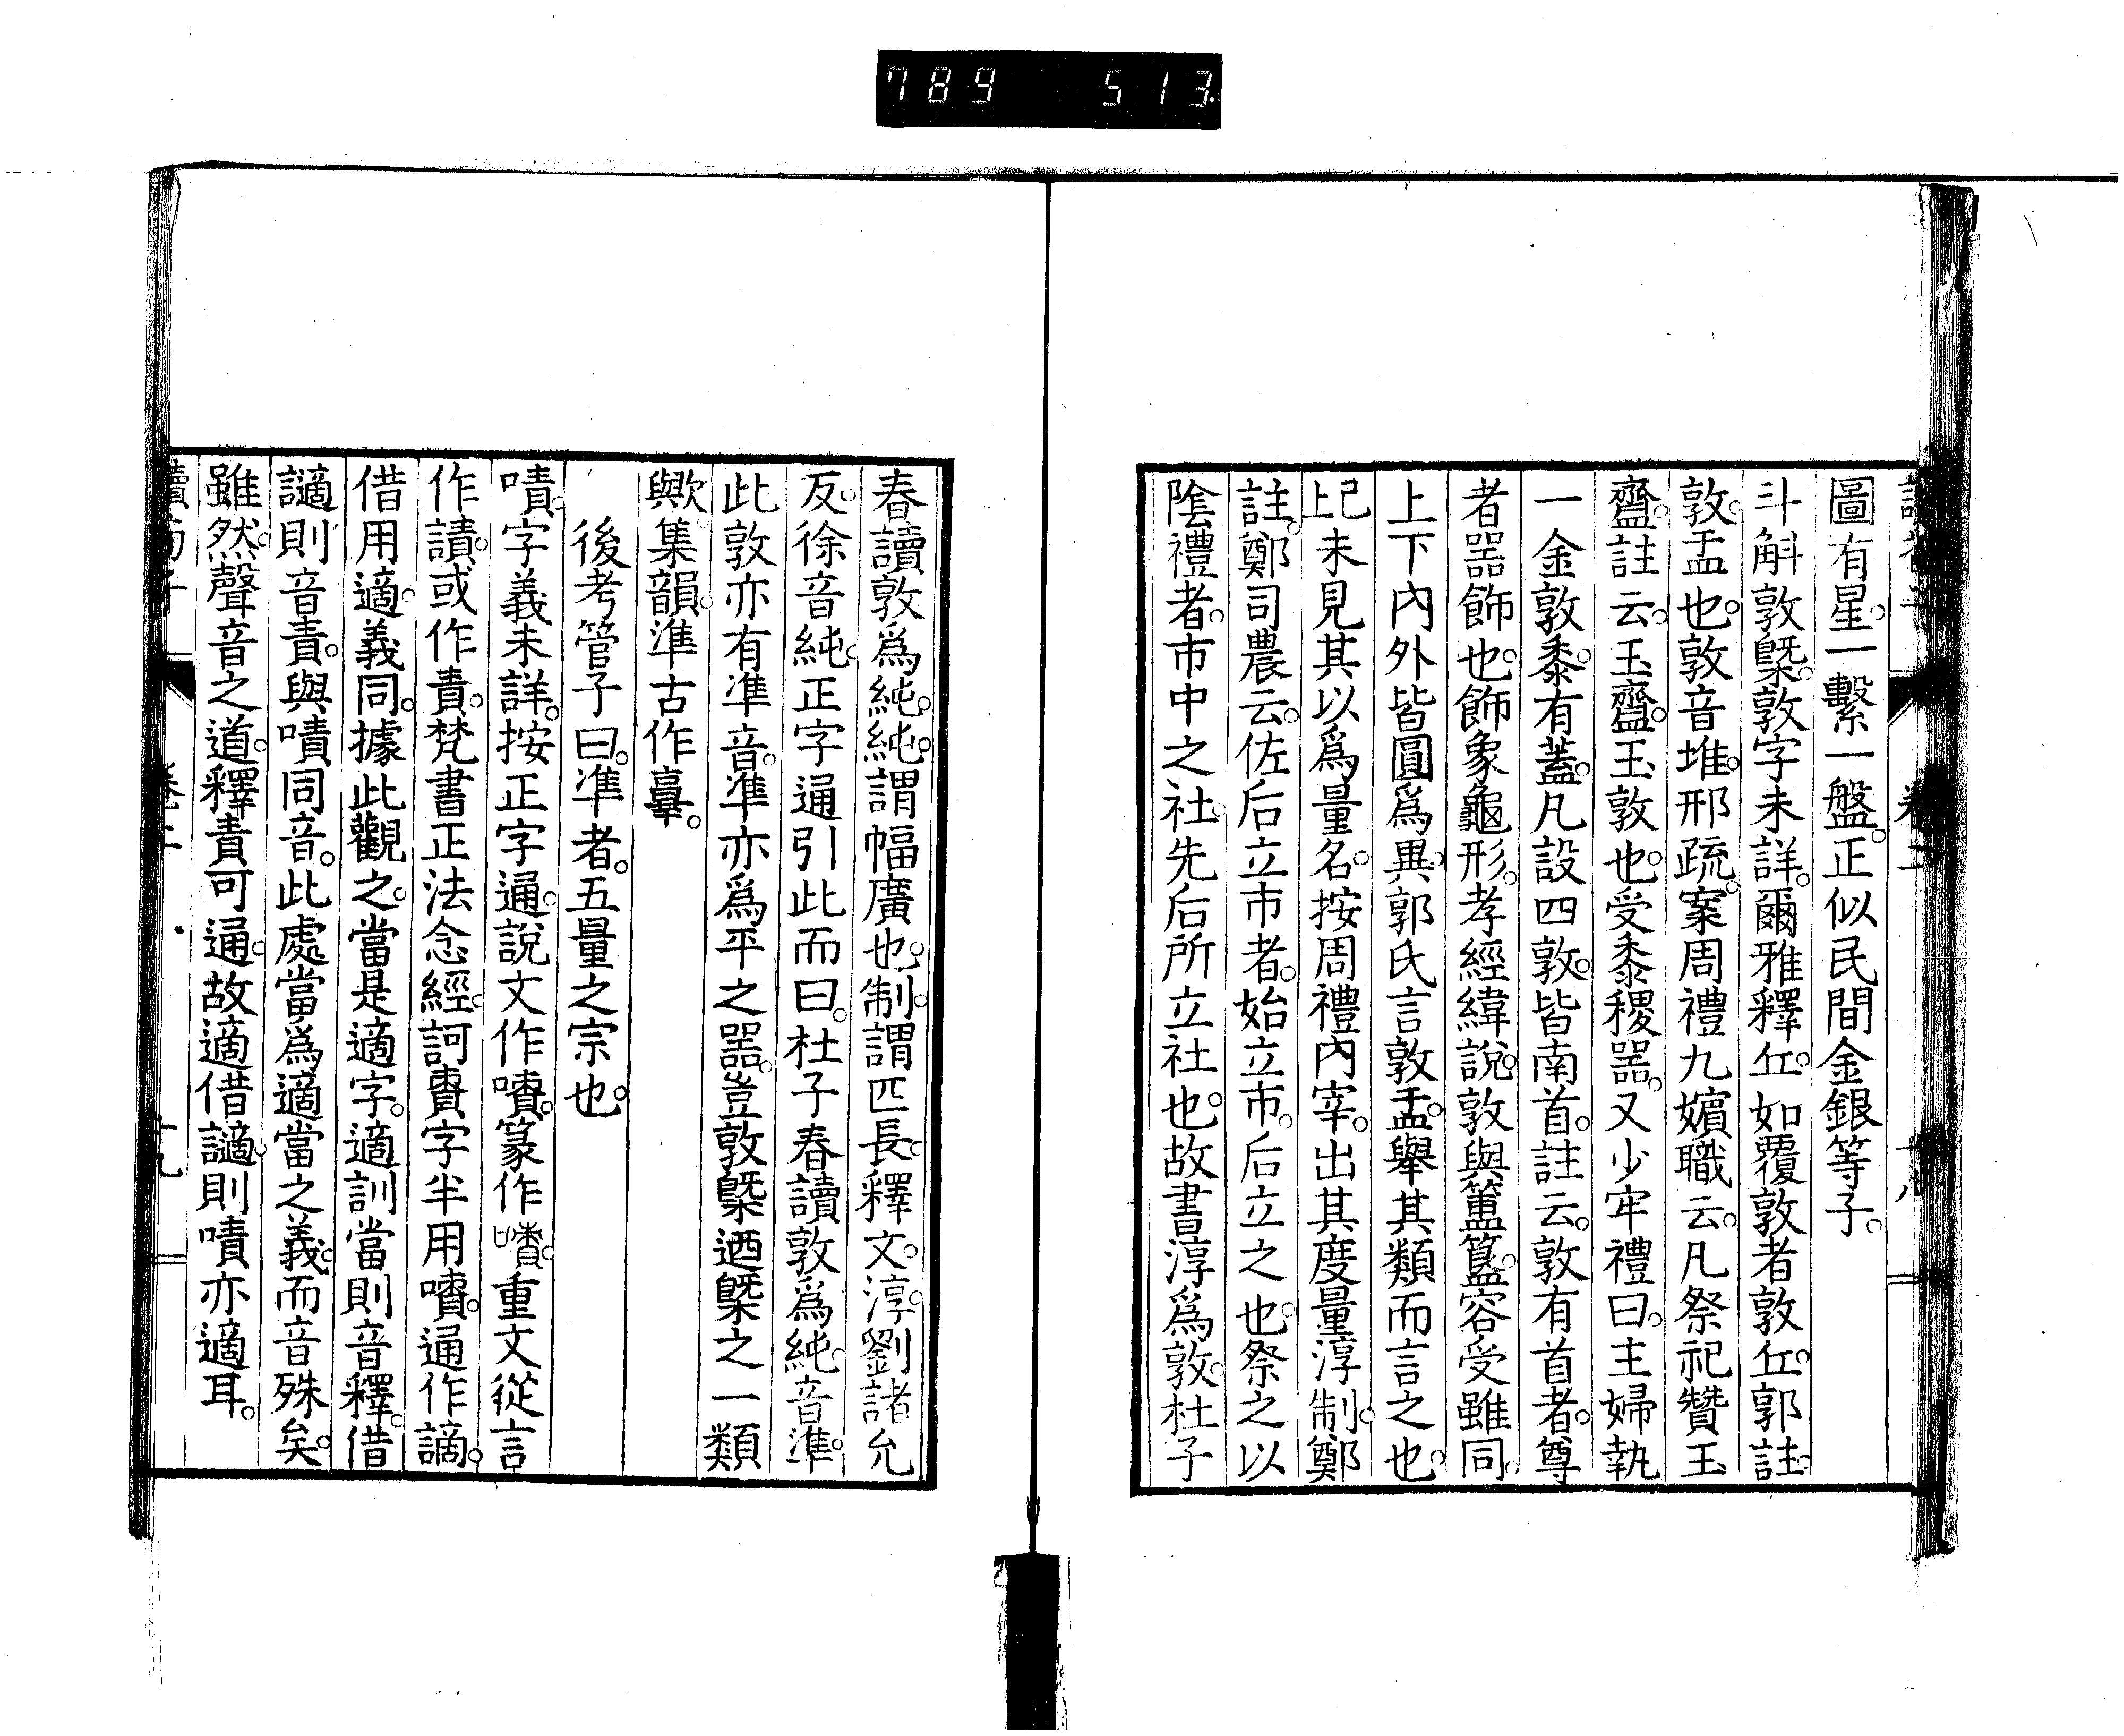 789 513
讀荀子 卷二 十八
圖有星。一繫一盤。正似民間金銀等子。
斗斛敦槩。敦字未詳。爾雅釋丘。如覆敦者敦丘。郭註。
敦。盂也。敦音堆。邢疏。案周禮九嬪職云。凡祭祀贊玉
齍。註云。玉齍。玉敦也。受黍稷器。又少牢禮曰。主婦執
一金敦黍。有蓋。凡設四敦。皆南首。註云。敦有首者。尊
者器飾也。飾象龜形。孝經緯說。敦與簠簋。容受雖同。
上下內外皆圓爲異。郭氏言敦盂。舉其類而言之也。
已上未見其以爲量名。按周禮內宰。出其度量淳制。鄭
註。鄭司農云。佐后立市者。始立市。后立之也。祭之以
陰禮者。市中之社。先后所立社也。故書淳爲敦。杜子
春讀敦爲純。純謂幅廣也。制謂匹長。釋文。淳。劉諸允
反。徐音純。正字通引此而曰。杜子春讀敦爲純。音準。
此敦亦有準音。準亦爲平之器。豈敦槩迺槩之一類
歟。集韻。準古作𦤎。
後考管子曰。準者。五量之宗也。
嘖。字義未詳。按正字通。說文作嘖。篆作嘖。重文從言
作讀。或作責。梵書正法念經。訶責字半用嘖。通作謫。
借用適。義同。據此觀之。當是適字。適訓當則音釋。借
讁則音責。與嘖同音。此處當爲適當之義。而音殊矣。
雖然。聲音之道。釋責可通。故適借讁。則嘖亦適耳。
讀荀子 卷二 十九